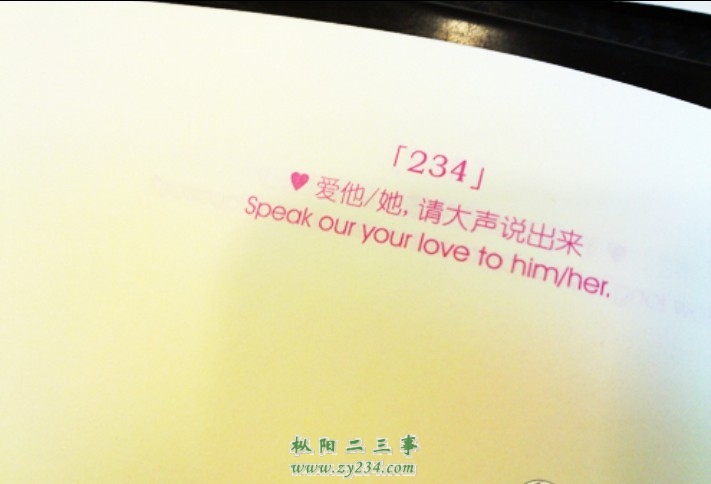 「234」
♥ 爱他/她, 请大声说出来
Speak our your love to him/her.
枞阳二三事
www.zy234.com